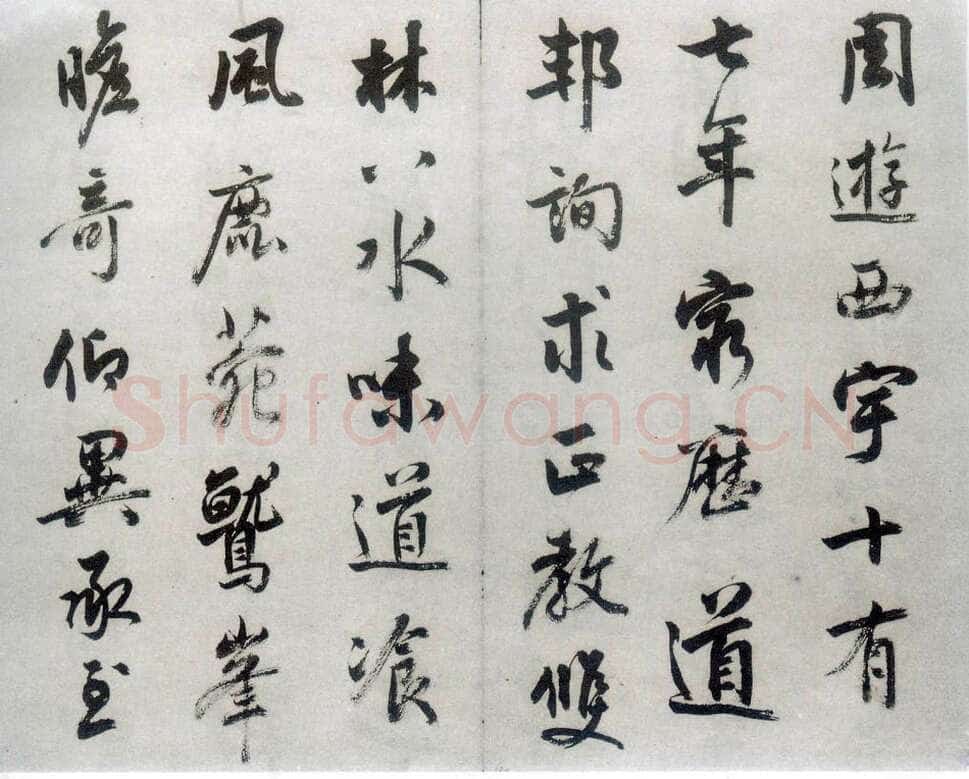 周遊西宇十有
七年窮歷道
邦詢求正教雙
林八水味道飡
風鹿苑鷲峯
瞻奇仰異承至
Shufawang.CN